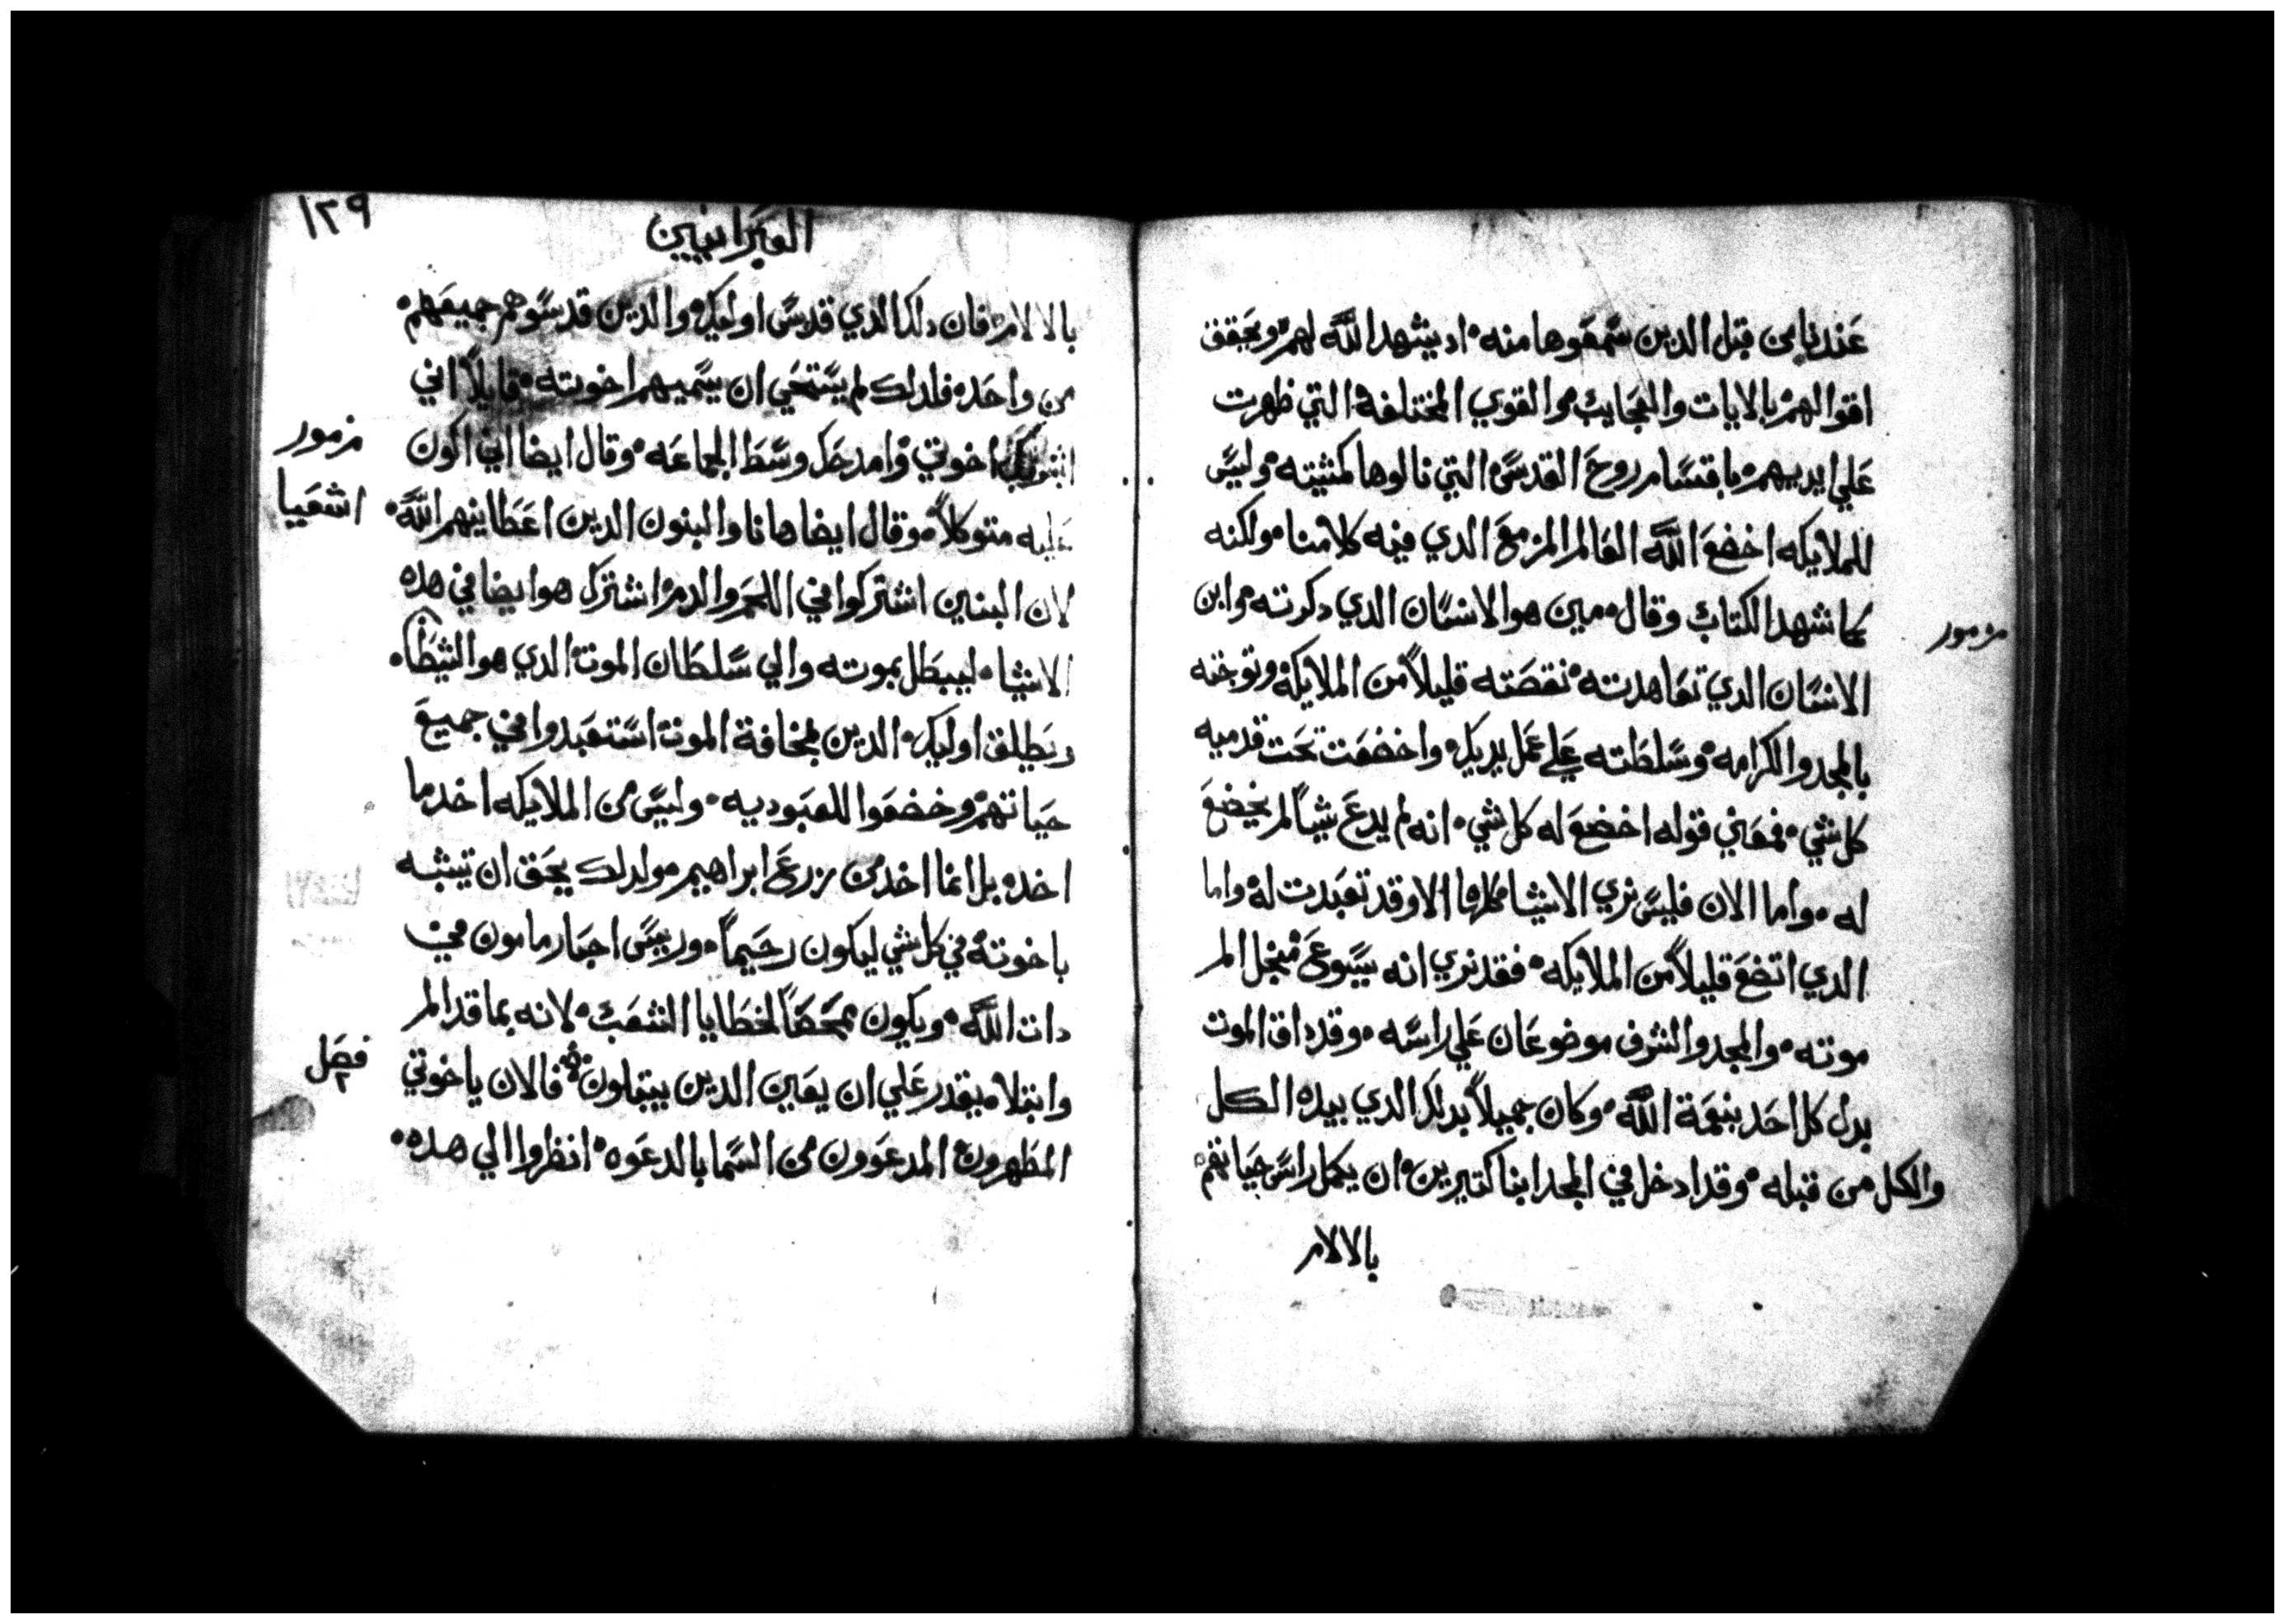 عندنا من قبل الدين سمعوها منه۰ اد يشهد الله لهم۰ ويحقق
اقوالهم۰ بالايات والعجايب۰ والقوي المختلفة۰ التي ظهرت
علي ايديهم۰ باقتسام روح القدس۰ التي نالوها كمشيته۰ وليس
للملايكه اخضع الله العالم المزمع الدي فيه كلامنا۰ ولكنه
كما شهد الكتاب وقال۰ مين هو الانسان الدي دكرته۰ وابن
مزمور
الانسان الدي تعاهدته۰ نقصته قليلاً من الملايكة۰ وتوجته
بالمجد والكرامه۰ وسلطته علي عمل يديك۰ واخضعت تحت قدميه
كل شي۰ فمعني قوله اخضع له كل شي۰ انه لم يدع شياً لم يخضع
له۰ واما الان فليس نري الاشيا كلها الا وقد تعبدت له۰ واما
الدي اتضع قليلاً من الملايكه۰ فقد نري انه يسوع۰ منجل الم
موته۰ والمجد والشرف موضوعان علي راسه۰ وقد داق الموت
بدل كل احد بنعمة الله۰ وكان جميلاً بدلك الدي بيده الكل
والكل من قبله۰ وقد ادخل في المجد ابنا كتيرين۰ ان يكمل راس حياتهم۰
بالالام
١٢٩
العبرانيين
بالالام۰ فان دلك الدي قدس اوليك۰ والدين قدسوا هم جميعهم۰
من واحد۰ فلدلك لم يستحي ان يسميهم اخوته۰ قايلاً اني
اخوتي۰ وامدحك وسط الجماعه۰ وقال ايضا اني اكون
مزمور
عليه متوكلاً۰ وقال ايضا هانا والبنون الدين اعطانيهم الله۰
اشعيا
لان البنين اشتركوا في اللحم والدم۰ اشترك هو ايضا في هده
الاشيا۰ ليبطل بموته والي سلطان الموت۰ الدي هو الشيطان۰
ويطلق اوليك۰ الدين لمخافة الموت۰ استعبدوا في جميع
حياتهم۰ وخضعوا للعبوديه۰ وليس من الملايكه اخد ما
اخد۰ بل انما اخد من زرع ابراهيم۰ ولدلك يحق ان تيشبه
باخوته۰ في كل شي ليكون رحيماً۰ وربيس احبار مامون في۰
دات الله۰ ويكون ممحصاً لخطايا الشعب۰ لانه بما قد الم
وابتلا۰ يقدر علي ان يعين الدين يبتلون۰ فالان ياخوتي
فصل
٢
المطهرون۰ المدعوون من السما بالدعوه۰ انظروا الي هده۰